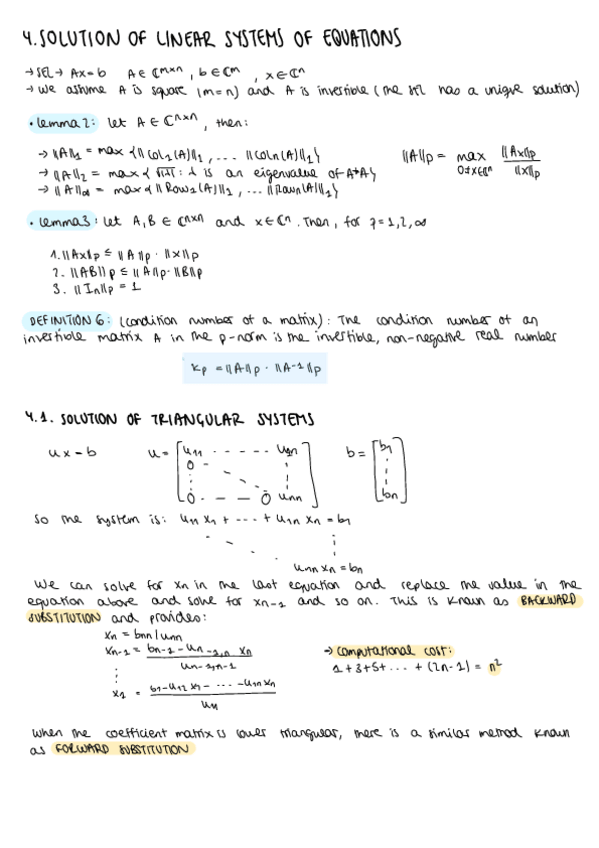 4. SOLUTION OF LINEAR SYSTEMS OF EQUATIONS
→ SEL → Ax=b A ∈ ℂ^{m×n}, b ∈ ℂ^m, x ∈ ℂ^n
→ We assume A is square (m=n) and A is invertible (the SEL has a unique solution)
• Lemma 2: Let A ∈ ℂ^{n×n}, then:
→ ||A||_1 = max {||Col_1(A)||_1, ... ||Col_n(A)||_1}
||A||_p = max_{0≠x∈ℂ^n} ||Ax||_p / ||x||_p
→ ||A||_2 = max {√|λ| : λ is an eigenvalue of A*A}
→ ||A||_∞ = max {||Row_1(A)||_1, ... ||Row_n(A)||_1}
• Lemma 3: Let A, B ∈ ℂ^{n×n} and x ∈ ℂ^n. Then, for p=1,2,∞
1. ||Ax||_p ≤ ||A||_p · ||x||_p
2. ||AB||_p ≤ ||A||_p · ||B||_p
3. ||In||_p = 1
DEFINITION 6: (condition number of a matrix): The condition number of an
invertible matrix A in the p-norm is the invertible, non-negative real number
k_p = ||A||_p · ||A^-1||_p
4.1. SOLUTION OF TRIANGULAR SYSTEMS
Ux=b U = [u_11 - - - - - u_1n 0 0 - - - 0 u_nn] b = [b_1 b_n]
So the system is: u_11 x_1 + --- + u_1n x_n = b_1
u_nn x_n = b_n
We can solve for x_n in the last equation and replace the value in the
equation above and solve for x_{n-1} and so on. This is known as BACKWARD
SUBSTITUTION and provides:
x_n = b_nn / u_nn
x_{n-1} = (b_{n-1} - u_{n-1,n} x_n) / u_{n-1,n-1}
→ computational cost:
1+3+5+ ... + (2n-1) = n²
x_1 = (b_1 - u_12 x_2 - --- - u_1n x_n) / u_11
When the coefficient matrix is lower triangular, there is a similar method known
as FORWARD SUBSTITUTION